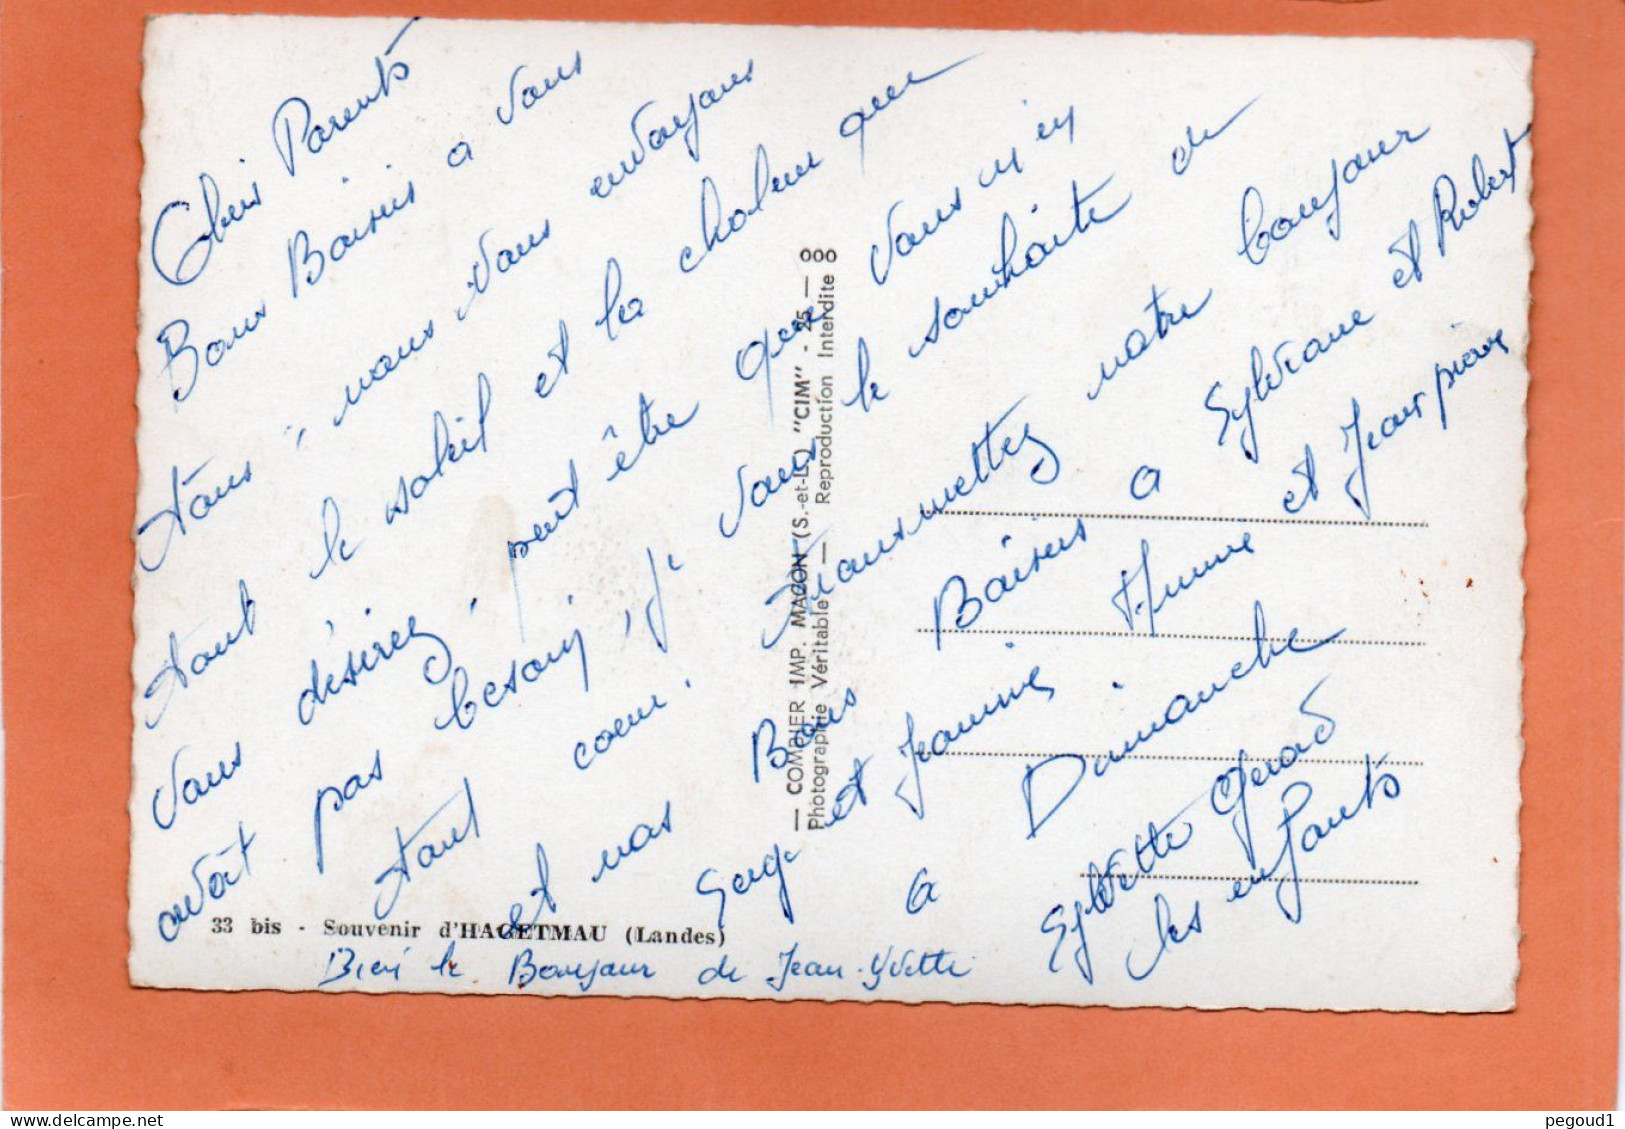 Chers Parents
Bons Baisers a vous
tous, nous vous envoyons
tant le soleil et la chaleur que
vous désirez, peut être que vous n'en
avait pas besoin, je vous le souhaite de
tout coeur. Transmettez notre bonjour
et nos Bons Baisers a Sylviane et Robert
Serge et Jeannine et Jean pierre
a Dimanche
Sylvette Gérard
les enfants
Bien le Bonjour de Jean-Yvette
33 bis - Souvenir d'HAGETMAU (Landes)
— COMBIER IMP. MACON (S.-et-L.) "CIM" - 25 —
Photographie Véritable — Reproduction Interdite
pegoud1